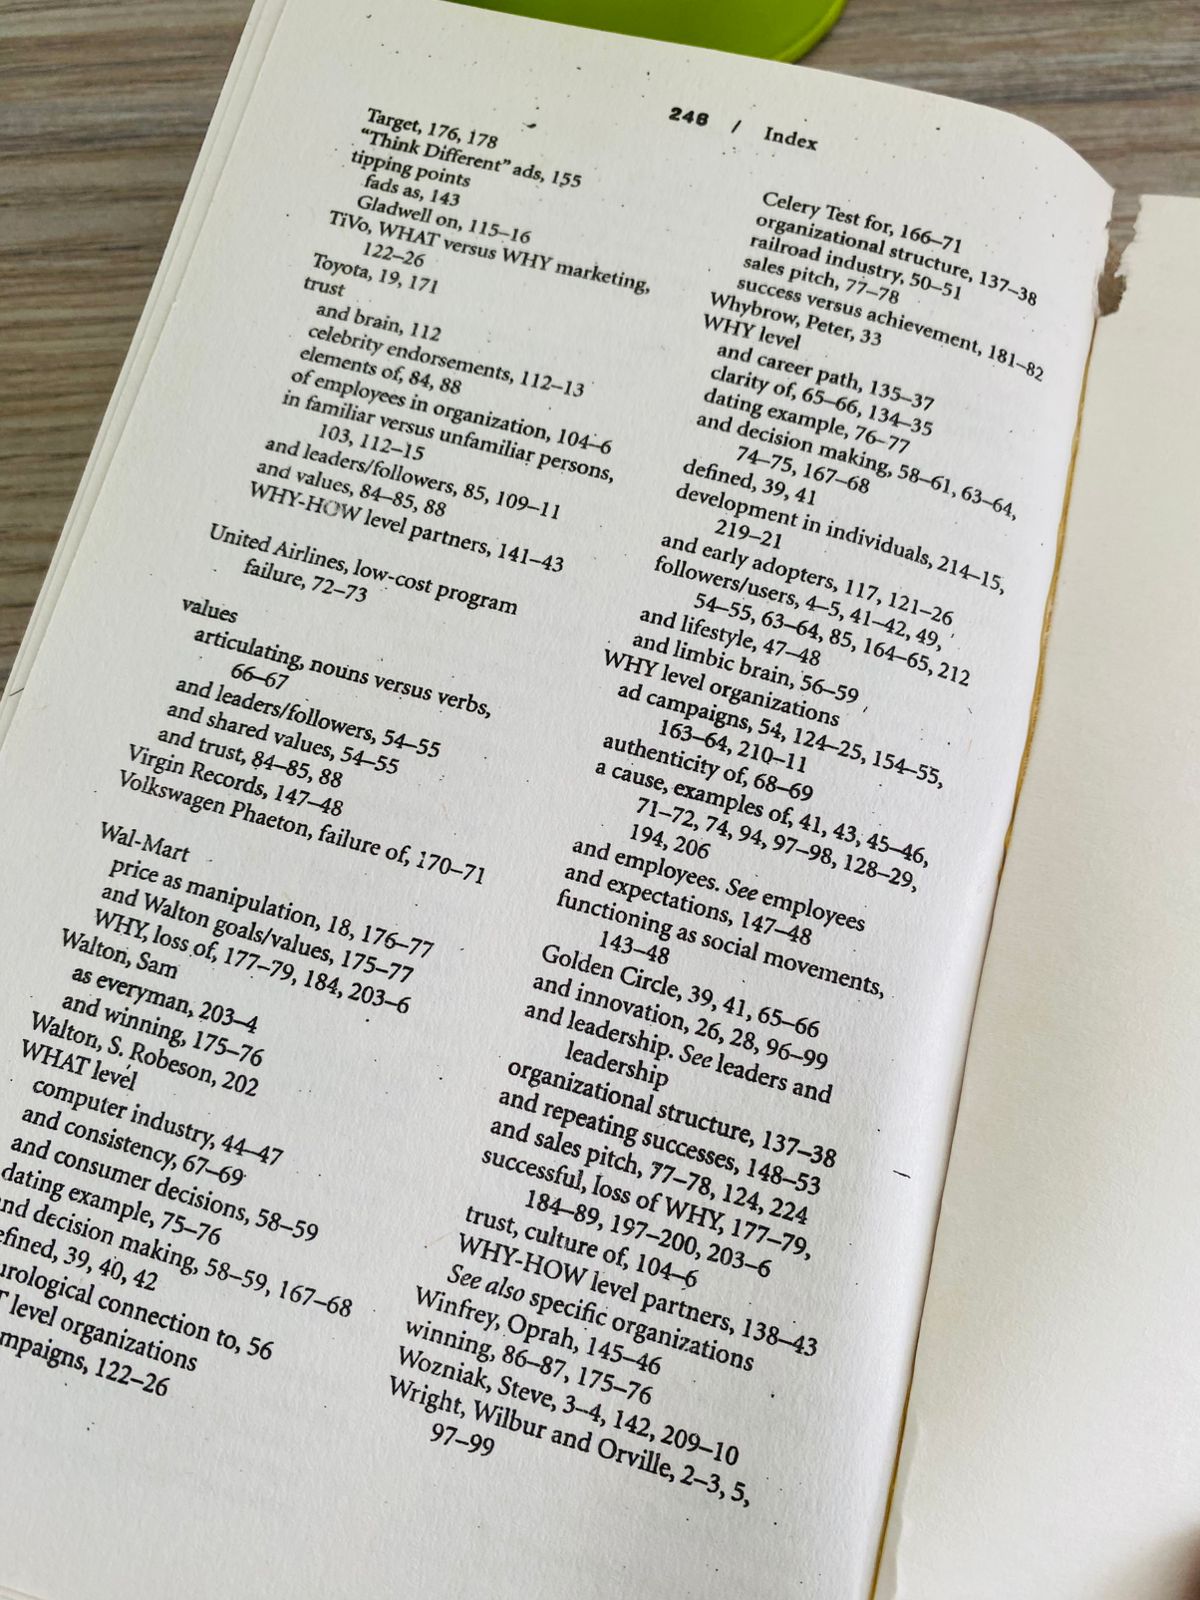 246 / Index
Target, 176, 178
“Think Different” ads, 155
tipping points
fads as, 143
Gladwell on, 115–16
TiVo, WHAT versus WHY marketing,
122–26
Toyota, 19, 171
trust
and brain, 112
celebrity endorsements, 112–13
elements of, 84, 88
of employees in organization, 104–6
in familiar versus unfamiliar persons,
103, 112–15
and leaders/followers, 85, 109–11
and values, 84–85, 88
WHY-HOW level partners, 141–43
United Airlines, low-cost program
failure, 72–73
values
articulating, nouns versus verbs,
66–67
and leaders/followers, 54–55
and shared values, 54–55
and trust, 84–85, 88
Virgin Records, 147–48
Volkswagen Phaeton, failure of, 170–71
Wal-Mart
price as manipulation, 18, 176–77
and Walton goals/values, 175–77
WHY, loss of, 177–79, 184, 203–6
Walton, Sam
as everyman, 203–4
and winning, 175–76
Walton, S. Robeson, 202
WHAT level
computer industry, 44–47
and consistency, 67–69
and consumer decisions, 58–59
dating example, 75–76
nd decision making, 58–59, 167–68
efined, 39, 40, 42
urological connection to, 56
T level organizations
mpaigns, 122–26
Celery Test for, 166–71
organizational structure, 137–38
railroad industry, 50–51
sales pitch, 77–78
success versus achievement, 181–82
Whybrow, Peter, 33
WHY level
and career path, 135–37
clarity of, 65–66, 134–35
dating example, 76–77
and decision making, 58–61, 63–64,
74–75, 167–68
defined, 39, 41
development in individuals, 214–15,
219–21
and early adopters, 117, 121–26
followers/users, 4–5, 41–42, 49,
54–55, 63–64, 85, 164–65, 212
and lifestyle, 47–48
and limbic brain, 56–59
WHY level organizations
ad campaigns, 54, 124–25, 154–55,
163–64, 210–11
authenticity of, 68–69
a cause, examples of, 41, 43, 45–46,
71–72, 74, 94, 97–98, 128–29,
194, 206
and employees. See employees
and expectations, 147–48
functioning as social movements,
143–48
Golden Circle, 39, 41, 65–66
and innovation, 26, 28, 96–99
and leadership. See leaders and
leadership
organizational structure, 137–38
and repeating successes, 148–53
and sales pitch, 77–78, 124, 224
successful, loss of WHY, 177–79,
184–89, 197–200, 203–6
trust, culture of, 104–6
WHY-HOW level partners, 138–43
See also specific organizations
Winfrey, Oprah, 145–46
winning, 86–87, 175–76
Wozniak, Steve, 3–4, 142, 209–10
Wright, Wilbur and Orville, 2–3, 5,
97–99